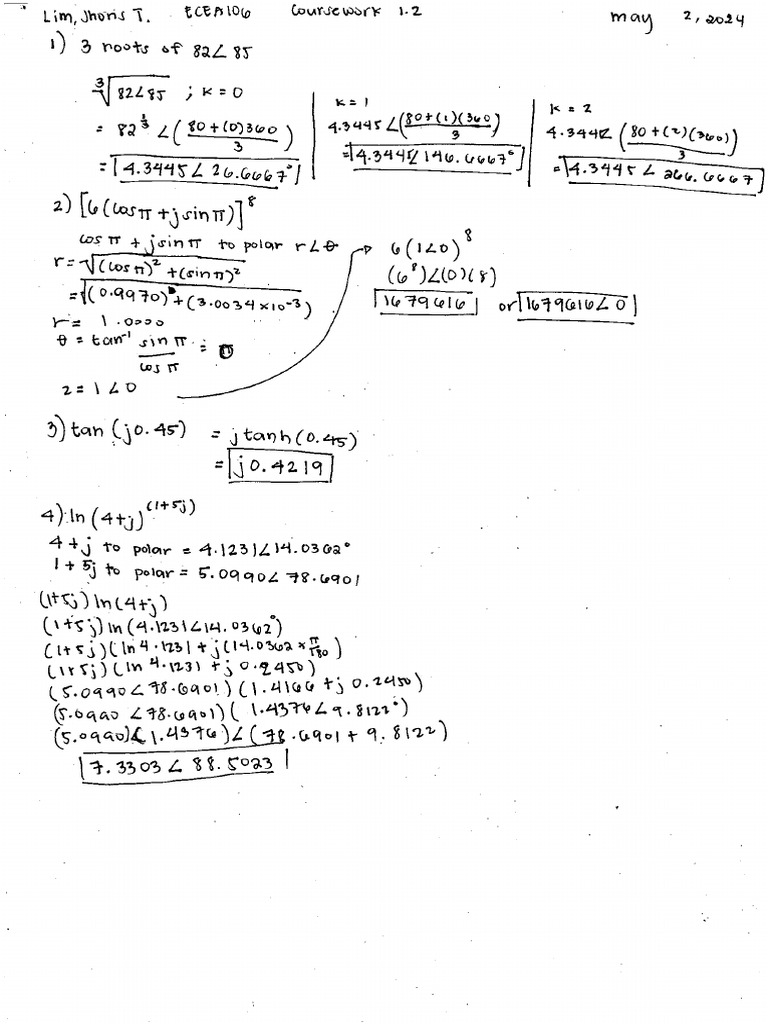 Lim, Jhoris T. ECEA106 Coursework 1.2 may 2, 2024
1) 3 roots of 82∠85
∛82∠85 ; k = 0
= 82^(1/3) ∠(80+(0)360/3)
= 4.3445∠26.6667°
k = 1
4.3445∠(80+(1)(360)/3)
= 4.3445∠146.6667°
k = 2
4.344∠(80+(2)(360)/3)
= 4.3445∠266.6667
2) [6(cosπ+jsinπ)]^8
cosπ + jsinπ to polar r∠θ
r = √((cosπ)²+(sinπ)²)
= √((0.9970)+(3.0034×10^-3))
r = 1.0000
θ = tan^-1 sinπ/cosπ = 0
z = 1∠0
6(1∠0)^8
(6^8)∠(0)(8)
1679616 or 1679616∠0
3) tan(j0.45) = jtanh(0.45)
= j0.4219
4) ln(4+j)^(1+5j)
4+j to polar = 4.1231∠14.0362°
1+5j to polar = 5.0990∠78.6901
(1+5j)ln(4+j)
(1+5j)ln(4.1231∠14.0362°)
(1+5j)(ln4.1231+j(14.0362×π/180)
(1+5j)(ln4.1231+j0.2450)
(5.0990∠78.6901)(1.4166+j0.2450)
(5.0990∠78.6901)(1.4376∠9.8122°)
(5.0990)(1.4376)∠(78.6901+9.8122)
7.3303∠88.5023